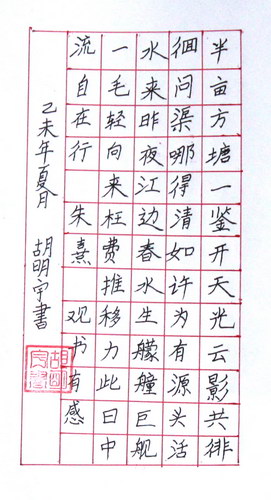 半亩方塘一鉴开天光云影共徘
徊问渠哪得清如许为有源头活
水来昨夜江边春水生艨艟巨舰
一毛轻向来枉费推移力此日中
流自在行 朱熹 观书有感
乙未年夏月 胡明宇書